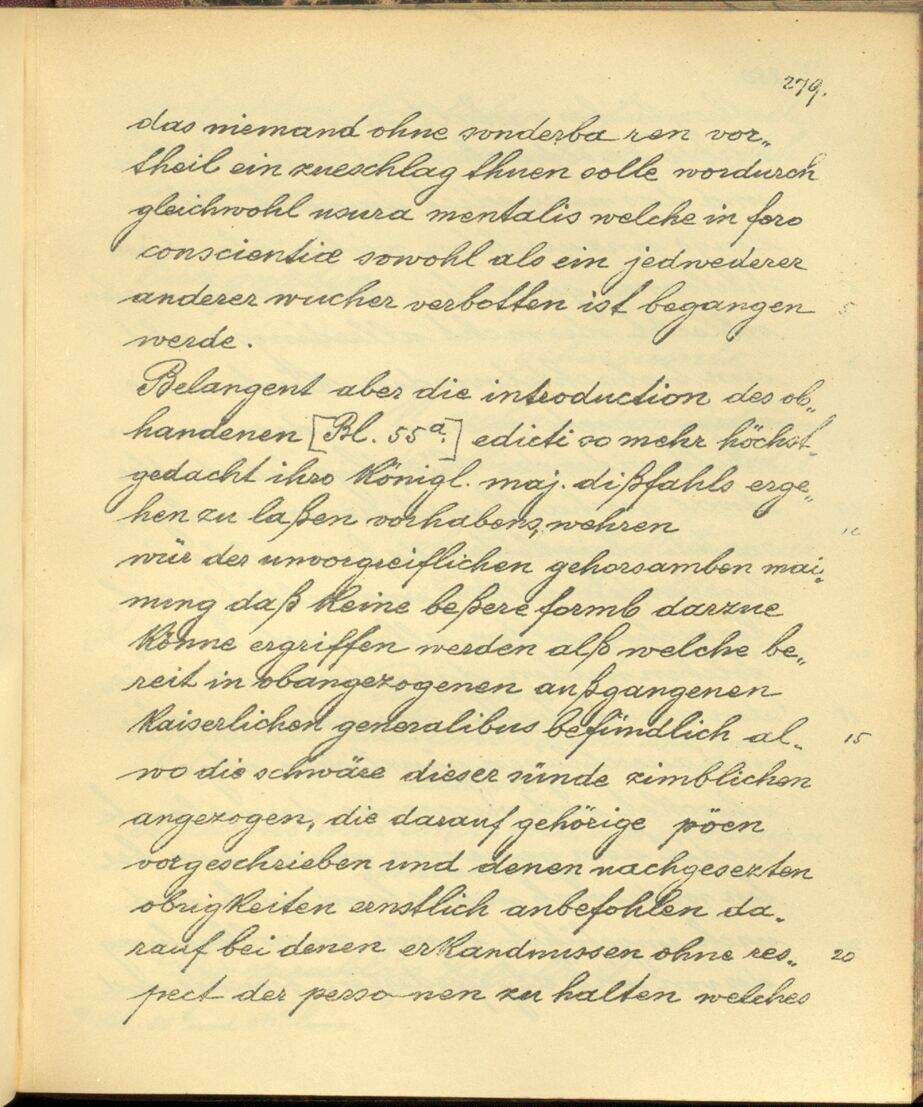 279.
das niemand ohne sonderba ren vor„
theil ein zueschlag thuen solle wordurch
gleichwohl usura mentalis welche in foro
conscientiæ sowohl als ein jedwederer
anderer wucher verbotten ist begangen 5
werde.
Belangent aber die introduction des ob„
handenen [Bl. 55ᵃ.] edicti so mehr höchst„
gedacht ihro Königl. maj. dißfahls erge„
hen zu laßen vorhabens, wehren 10
wür der unvorgreiflichen gehorsamben mai„
nung daß keine beßere formb darzue
könne ergriffen werden alß welche be„
reit in obangezogenen außgangenen
kaiserlichen generalibus befündlich al„ 15
wo die schwäre dieser sünde zimblichen
angezogen, die darauf gehörige pöen
vorgeschrieben und denen nachgesezten
obrigkeiten ernstlich anbefohlen da„
rauf bei denen erkandnussen ohne res„ 20
pect der perso nen zu halten welches